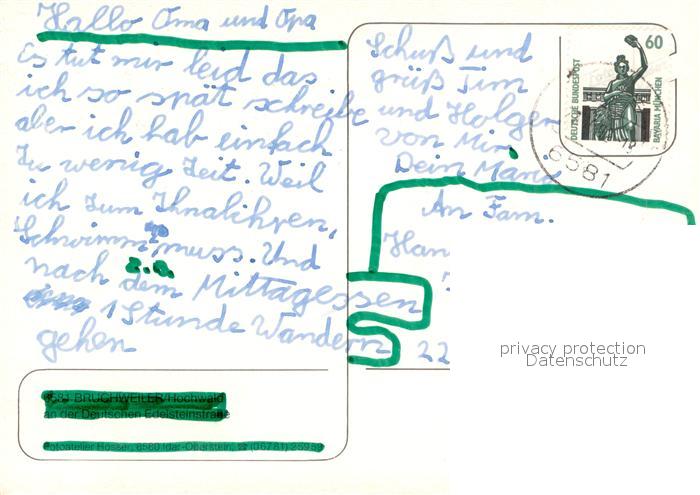 Hallo Oma und Opa
Es tut mir leid das
ich so spät schreibe
aber ich hab einfach
zu wenig Zeit. Weil
ich zum
Schwimm muss. Und
z.B.
nach dem Mittagessen
1 Stunde Wandern
gehen
Schuß und
grüß Tim
und Holger
von Mir
Dein
An Fam.
Han
22
60
DEUTSCHE BUNDESPOST
BAVARIA MÜNCHEN
6581
privacy protection
Datenschutz
6581 BRUCHWEILER/Hochwald
an der Deutschen Edelsteinstraße
Fotoatelier Hosser, 6580 Idar-Oberstein, ☎ (06781) 25953